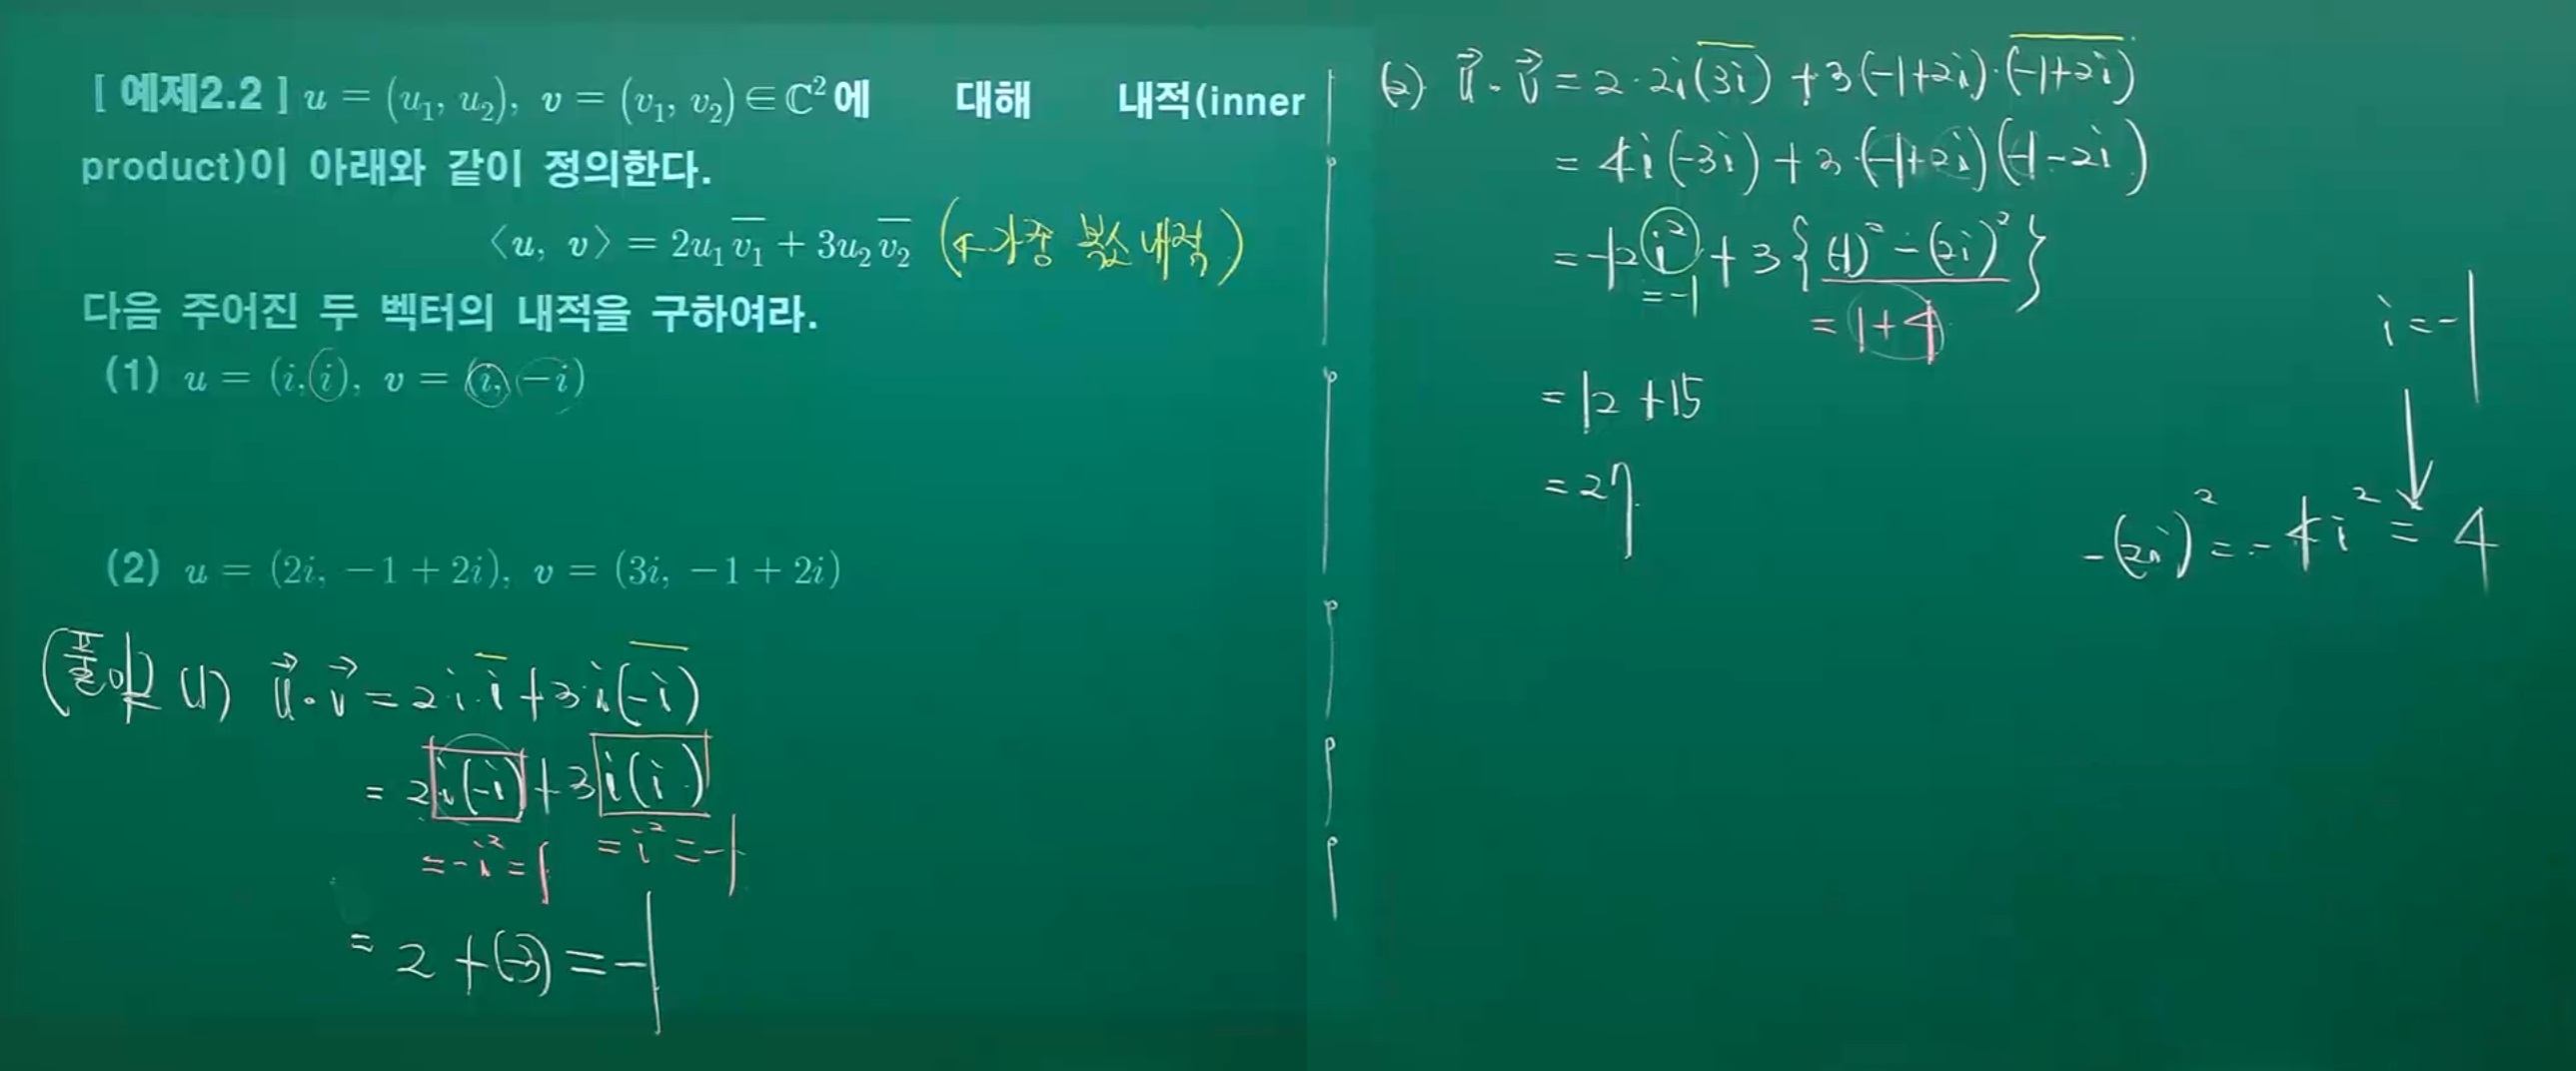 [ 예제2.2 ] u = (u₁, u₂), v = (v₁, v₂)∈ℂ²에 대해 내적(inner
product)이 아래와 같이 정의한다.
⟨u, v⟩ = 2u₁v̅₁ + 3u₂v̅₂ (← 가중 복소 내적)
다음 주어진 두 벡터의 내적을 구하여라.
(1) u = (i, i), v = (i, −i)
(2) u = (2i, −1+2i), v = (3i, −1+2i)
(풀이) (1) u⃗·v⃗ = 2i·i̅ + 3·i(\overline{-i})
= 2i(-i) + 3i(i)
= -i² = 1 = i² = -1
= 2 + (-3) = -1
(2) u⃗·v⃗ = 2·2i(\overline{3i}) + 3(-1+2i)·\overline{(-1+2i)}
= 4i(-3i) + 3·(-1+2i)(-1-2i)
= -12i² + 3{(-1)² - (2i)²}
= -1 = 1+4
= 12 + 15
= 27
i = -1
-(2i)² = -4i² = 4